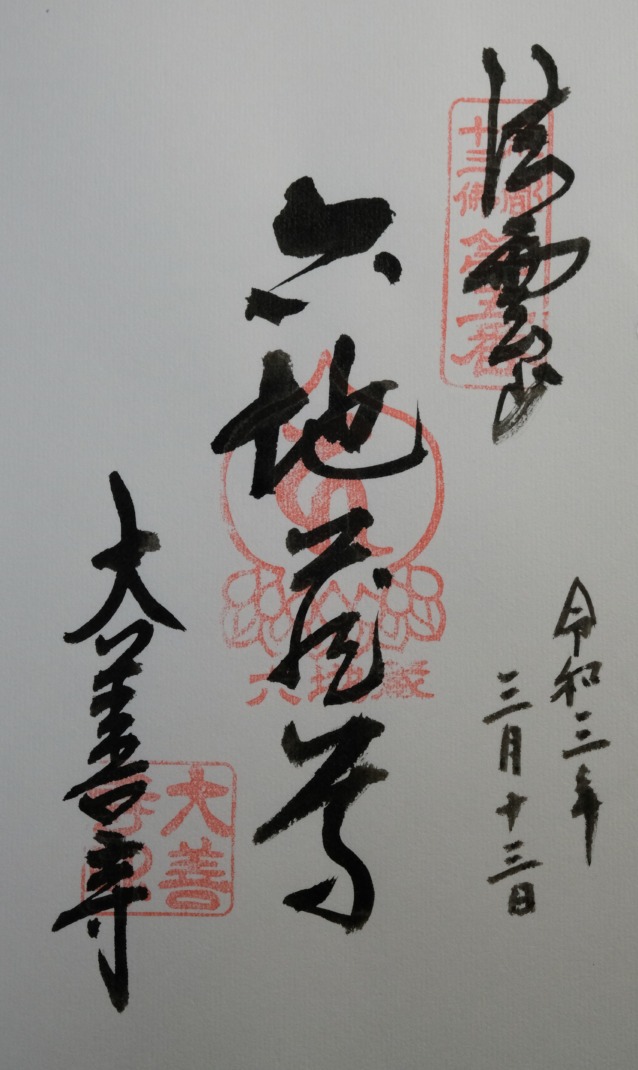 法雲山
令和三年
三月十三日
六地蔵尊
六地蔵
大善寺
大善
寺印